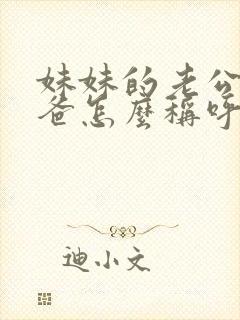 妹妹的老公
爸怎麼稱呼
迪小文